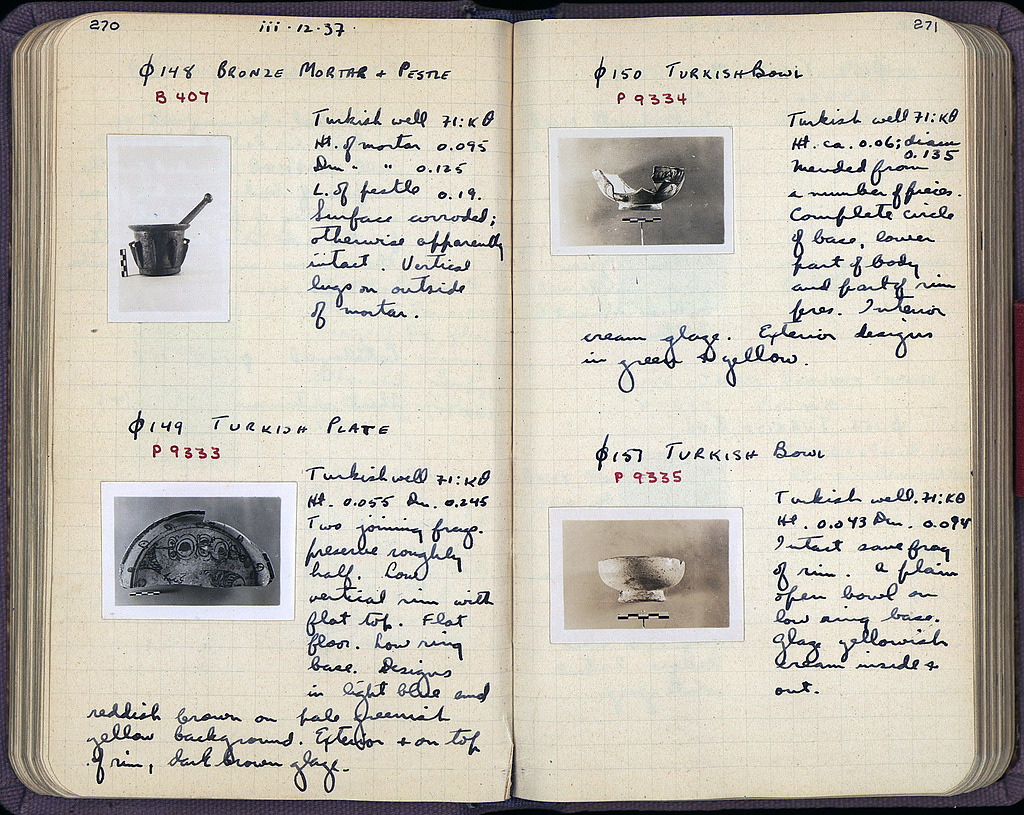 270
iii · 12 · 37 ·
φ148 BRONZE MORTAR + PESTLE
B 407
Turkish well 71:ΚΘ
Ht. of mortar 0.095
Dm. " " 0.125
L. of pestle 0.19.
Surface corroded;
otherwise apparently
intact. Vertical
lugs on outside
of mortar.
φ149 TURKISH PLATE
P 9333
Turkish well 71:ΚΘ
Ht. 0.055 Dm. 0.245
Two joining frags.
preserve roughly
half. Low
vertical rim with
flat top. Flat
floor. Low ring
base. Designs
in light blue and
reddish brown on pale greenish
yellow background. Exterior + on top
of rim, dark brown glaze.
271
φ150 TURKISH BOWL
P 9334
Turkish well 71:ΚΘ
Ht. ca. 0.06; diam
0.135
Mended from
a number of pieces.
Complete circle
of base, lower
part of body
and part of rim
pres. Interior
cream glaze. Exterior designs
in green + yellow.
φ151 TURKISH BOWL
P 9335
Turkish well. 71:ΚΘ
Ht. 0.043 Dm. 0.094
Intact save frag
of rim. A plain
open bowl on
low ring base.
Glaze yellowish
cream inside +
out.